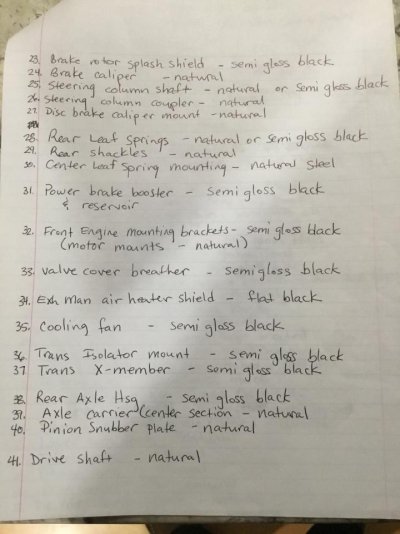 23. Brake rotor splash shield - semi gloss black.
24. Brake caliper - natural
25. Steering column shaft - natural or semi gloss black
26. Steering column coupler - natural
27. Disc brake caliper mount - natural
28. Rear Leaf Springs - natural or semi gloss black
29. Rear shackles - natural
30. Center Leaf Spring mounting - natural steel
31. Power brake booster - semi gloss black
& reservoir
32. Front Engine mounting brackets - semi gloss black
(motor mounts - natural)
33. valve cover breather - semi gloss black
34. Exh man air heater shield - flat black
35. Cooling fan - semi gloss black
36. Trans Isolator mount - semi gloss black
37. Trans X-member - semi gloss black
38. Rear Axle Hsg - semi gloss black
39. Axle carrier (center section - natural
40. Pinion Snubber plate - natural
41. Drive shaft - natural